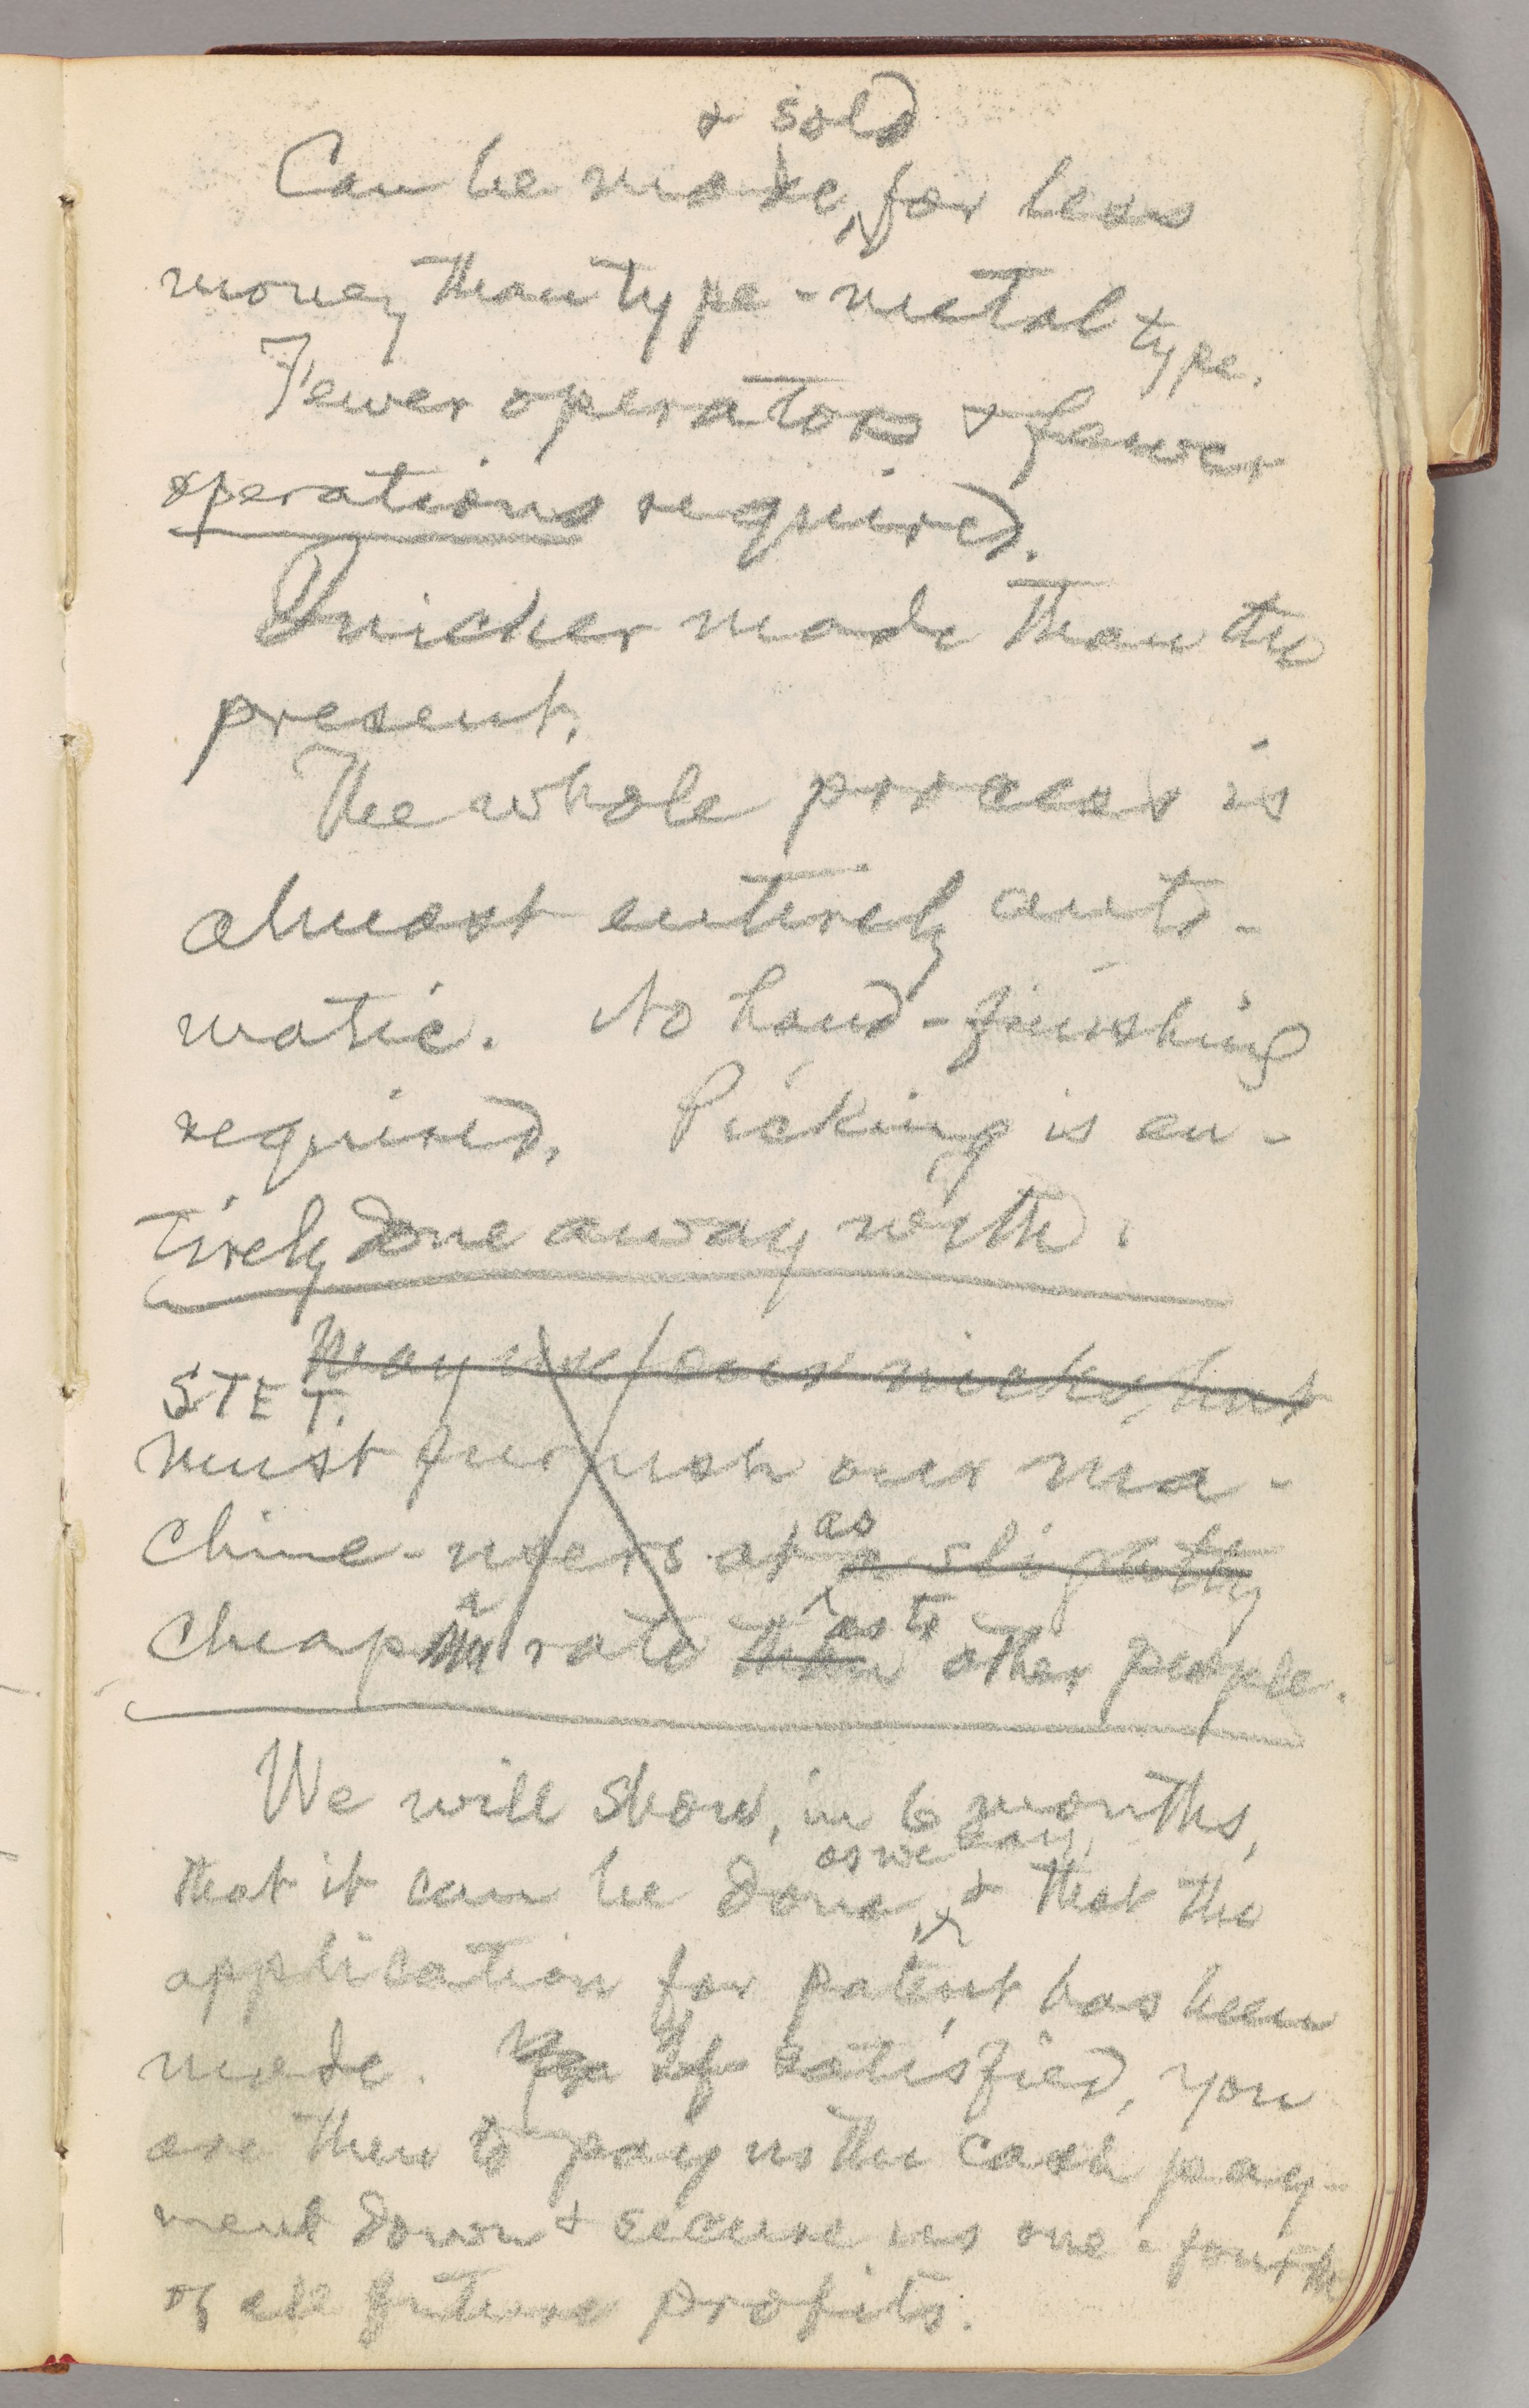 & sold
Can be made, for less
money than type-metal type.
Fewer operators & fewer
operations required.
Quicker made than the
present.
The whole process is
almost entirely auto-
matic. No hand-finishing
required. Picking is en-
tirely done away with.
May use our nicks, but
STET.
must furnish our ma-
as
chine-users at a slightly
a as to
cheap rate than other people.
We will show, in 6 months,
as we say,
that it can be done, & that the
application for patent has been
made. If satisfied, you
are then to pay us the cash pay-
ment down & secure us one-fourth
of all future profits.